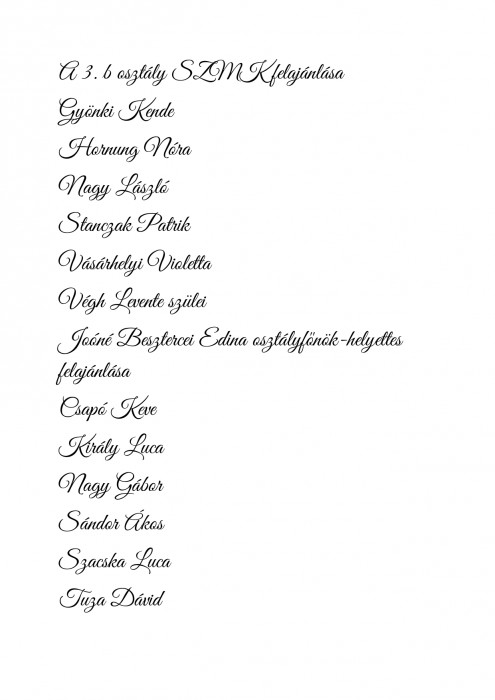 A 3. b osztály SZMK felajánlása
Gyönki Kende
Hornung Nóra
Nagy László
Stanczak Patrik
Vásárhelyi Violetta
Végh Levente szülei
Joóné Besztercei Edina osztályfőnök-helyettes
felajánlása
Csapó Keve
Király Luca
Nagy Gábor
Sándor Ákos
Szacska Luca
Tuza Dávid